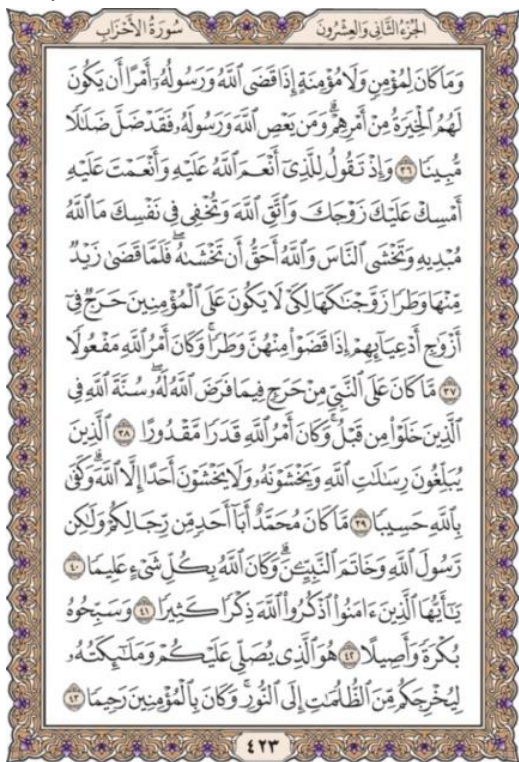 الجزء الثاني والعشرون
سورة الأحزاب
وَمَا كَانَ لِمُؤْمِنٍ وَلَا مُؤْمِنَةٍ إِذَا قَضَى ٱللَّهُ وَرَسُولُهُۥٓ أَمْرًا أَن يَكُونَ
لَهُمُ ٱلْخِيَرَةُ مِنْ أَمْرِهِمْ ۗ وَمَن يَعْصِ ٱللَّهَ وَرَسُولَهُۥ فَقَدْ ضَلَّ ضَلَٰلًا
مُّبِينًا ٣٦ وَإِذْ تَقُولُ لِلَّذِىٓ أَنْعَمَ ٱللَّهُ عَلَيْهِ وَأَنْعَمْتَ عَلَيْهِ
أَمْسِكْ عَلَيْكَ زَوْجَكَ وَٱتَّقِ ٱللَّهَ وَتُخْفِى فِى نَفْسِكَ مَا ٱللَّهُ
مُبْدِيهِ وَتَخْشَى ٱلنَّاسَ وَٱللَّهُ أَحَقُّ أَن تَخْشَىٰهُ ۖ فَلَمَّا قَضَىٰ زَيْدٌ
مِّنْهَا وَطَرًا زَوَّجْنَٰكَهَا لِكَىْ لَا يَكُونَ عَلَى ٱلْمُؤْمِنِينَ حَرَجٌ فِىٓ
أَزْوَٰجِ أَدْعِيَآئِهِمْ إِذَا قَضَوْا۟ مِنْهُنَّ وَطَرًا ۚ وَكَانَ أَمْرُ ٱللَّهِ مَفْعُولًا
٣٧ مَّا كَانَ عَلَى ٱلنَّبِىِّ مِنْ حَرَجٍ فِيمَا فَرَضَ ٱللَّهُ لَهُۥ ۖ سُنَّةَ ٱللَّهِ فِى
ٱلَّذِينَ خَلَوْا۟ مِن قَبْلُ ۚ وَكَانَ أَمْرُ ٱللَّهِ قَدَرًا مَّقْدُورًا ٣٨ ٱلَّذِينَ
يُبَلِّغُونَ رِسَٰلَٰتِ ٱللَّهِ وَيَخْشَوْنَهُۥ وَلَا يَخْشَوْنَ أَحَدًا إِلَّا ٱللَّهَ ۗ وَكَفَىٰ
بِٱللَّهِ حَسِيبًا ٣٩ مَّا كَانَ مُحَمَّدٌ أَبَآ أَحَدٍ مِّن رِّجَالِكُمْ وَلَٰكِن
رَّسُولَ ٱللَّهِ وَخَاتَمَ ٱلنَّبِيِّۦنَ ۗ وَكَانَ ٱللَّهُ بِكُلِّ شَىْءٍ عَلِيمًا ٤٠
يَٰٓأَيُّهَا ٱلَّذِينَ ءَامَنُوا۟ ٱذْكُرُوا۟ ٱللَّهَ ذِكْرًا كَثِيرًا ٤١ وَسَبِّحُوهُ
بُكْرَةً وَأَصِيلًا ٤٢ هُوَ ٱلَّذِى يُصَلِّى عَلَيْكُمْ وَمَلَٰٓئِكَتُهُۥ
لِيُخْرِجَكُم مِّنَ ٱلظُّلُمَٰتِ إِلَى ٱلنُّورِ ۚ وَكَانَ بِٱلْمُؤْمِنِينَ رَحِيمًا ٤٣
٤٢٣